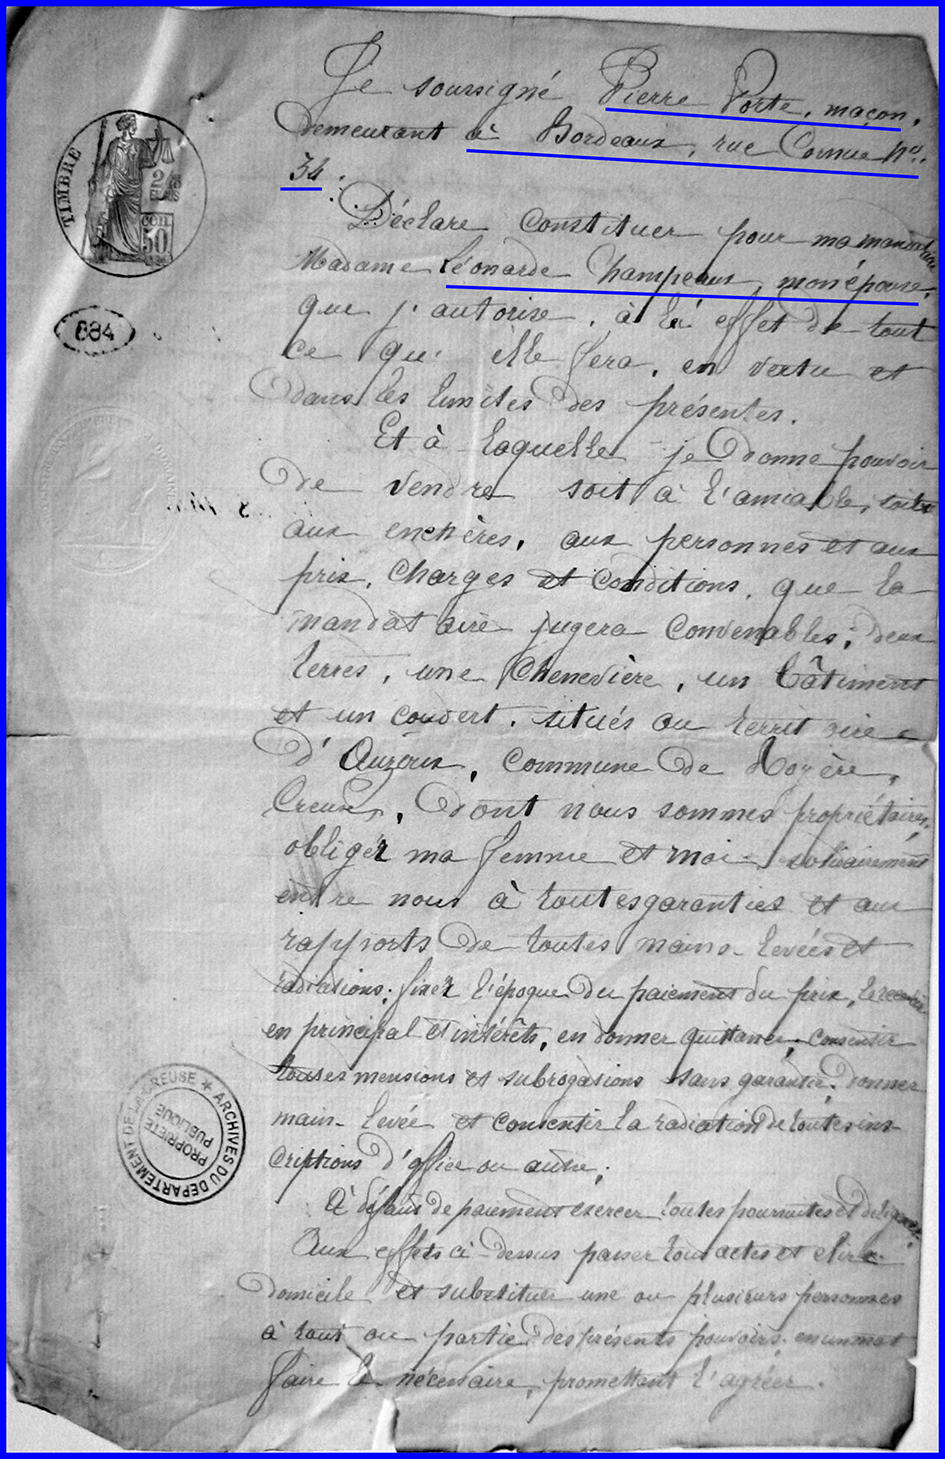 Je soussigné Pierre Porte, maçon,
demeurant à Bordeaux, rue Cornue No.
34.
Déclare constituer pour ma mandataire
Madame Léonarde Champeaux, mon épouse,
que j'autorise, à l'effet de tout
ce qu'elle fera, en vertu et
dans les limites des présentes.
Et à laquelle je donne pouvoir
de vendre soit à l'amiable, soit
aux enchères, aux personnes et aux
prix, charges et conditions, que la
mandataire jugera convenables; deux
terres, une Chenevière, un bâtiment
et un coudert, situés au territoire
d'Auzoux, commune de Royère,
Creuse, dont nous sommes propriétaires,
obliger ma femme et moi solidairement
entre nous à toutes garanties et aux
rapports de toutes mains-levées et
radiations; fixer l'époque du paiement du prix, le recevoir
en principal et intérêts, en donner quittance, consentir
toutes mensions et subrogasions sans garantie; donner
main-levée et consentir la radiation de toutes ins-
criptions d'office ou autre;
À défaut de paiement exercer toutes poursuites et diligences.
Aux effets ci-dessus passer tous actes et élire
domicile et substituer une ou plusieurs personnes
à tout ou partie des présents pouvoirs; en un mot
faire le nécessaire, promettant l'agréer.
TIMBRE
2 CENTS
CEN. 50
684
ARCHIVES DU DEPARTEMENT DE LA CREUSE
PROPRIETE
PUBLIQUE